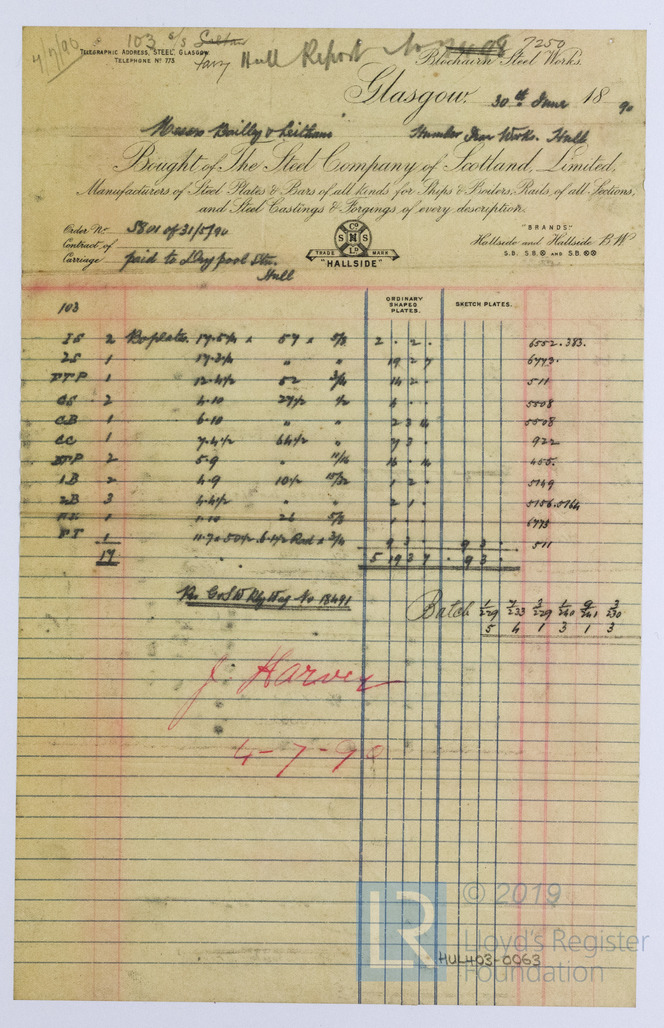 4/7/90
103 S/S
TELEGRAPHIC ADDRESS, "STEEL", GLASGOW
TELEPHONE Nº 773
Hull Report No 7250
Blochairn Steel Works.
Glasgow. 30th June 1890
Messrs Bailey & Leetham Humber Iron Works. Hull
Bought of The Steel Company of Scotland, Limited,
Manufacturers of Steel Plates & Bars of all kinds for Ships & Boilers, Rails of all Sections,
and Steel Castings & Forgings of every description.
Order No. 5801 of 31/5/90
Contract of
Carriage paid to Drypool Stn.
Hull
SCNS Co Ld
TRADE MARK
"HALLSIDE"
"BRANDS"
Hallside and Hallside B.W
ORDINARY SHAPED PLATES. SKETCH PLATES.
103
1S 2 Boplates 17.5½ x 57 x 5/8 2 . 2 . 6552.383.
2S 1 17.3½ " " 19 2 7 6773.
FTP 1 12.4½ 52 3/4 14 2 . 511
CS 2 4.10 27½ ½ 5508
CB 1 6.10 " " 2 3 14 5508
CC 1 7.4½ 64½ " 7 3 . 922
BTP 2 5.9 " 11/16 455.
1B 2 4.9 10½ 15/32 1 2 . 5149
2B 3 4.4½ " " 2 1 . 5156.5164
1 1.10 26 5/8 1 . . 6773
FT 1 3/4 9 3 . 9 3 . 511
17 5 19 3 7 . 9 3 .
Wag No 18491
Batch
5 4 1 3 1 3
J Harvey
4-7-90
LR
© 2019
Lloyd's Register
Foundation
HUL403-0063